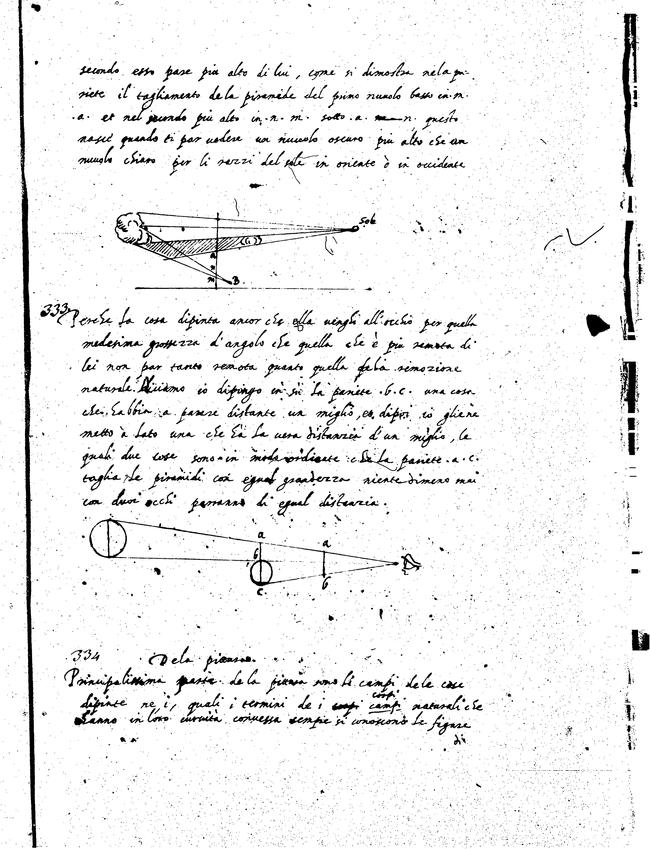 secondo esso pare piu alto di lui, come si dimostra nela pa-
riete il tagliamento dela piramide del primo nuvolo basso in.m.
.a. et nel secondo piu alto in.n.m. sotto.a. n. questo
nasce quando ti par vedere un nuvolo oscuro piu alto che un
nuvolo chiaro per li razzi del sole in oriente ò in occidente
Sole
a
n
m
B
333
Perche la cosa dipinta ancor che ella venghi all'occhio per quella
medesima grossezza d'angolo che quella che è piu remota di
lei non par tanto remota quanto quella dela remozione
naturale. Diciamo io dipingo in su la pariete .b.c. una cosa
che habbia à parere distante un miglio, et dipoi io gliene
metto à lato una che hà la vera distanzia d'un miglio, le
quali due cose sono in modo ordinate che la pariete .a.c.
taglia le piramidi con egual grandezza nientedimeno mai
con duoi occhi parranno di egual distanzia.
a
a
b
b
c
334
Dela pittura.
Principalissima parte dela pittura sono li campi dele cose
dipinte ne i, quali i termini de i campi naturali che
corpi
hanno in loro curvità convessa sempre si conoscono le figure
di